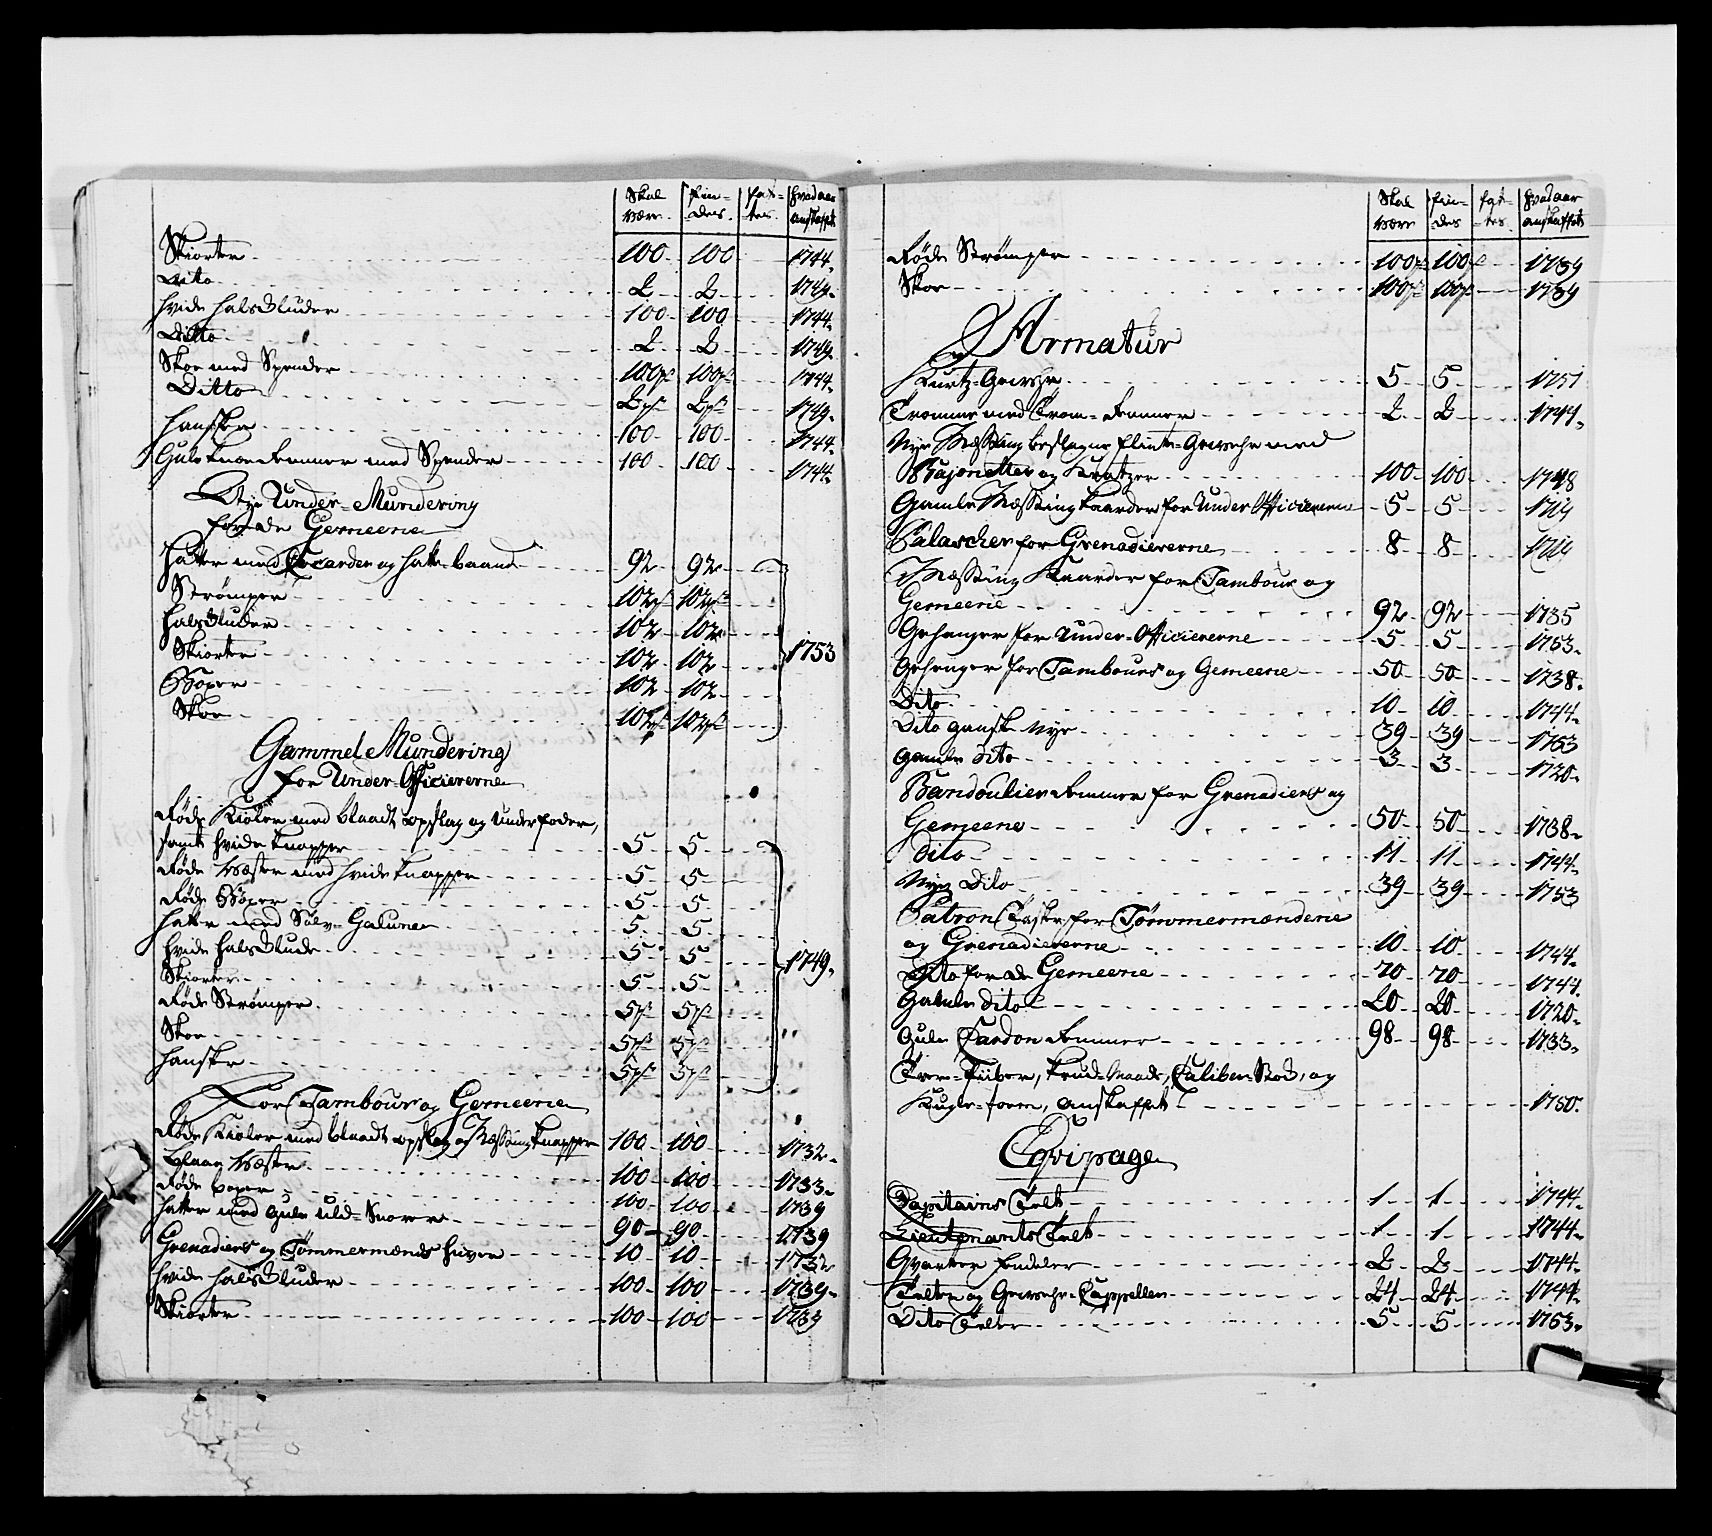 Skal være. Fin-des. Fat-tes. Hvad aar anskaffet
Skiorter 100 100 1744.
Dito 2 2 1749.
Hvide Halsklude 100 100 1744.
Ditto 2 2 1749.
Skoe med Spender 100 pr 100 pr 1744.
Ditto 2 pr 2 pr 1749.
Hansker 100 100 1744.
Gule Knæ Remmer med Spender 100 100 1744.
Nye Under-Mundering
for de Gemeene
Hatter med Cocarder og Hatte-baand 92 92
Strømper 102 pr 102 pr
Halsklude 102 102
Skiorter 102 102 1753
Boxer 102 102
Skoe 102 pr 102 pr
Gammel Mundering
for Under-Officiererne
Røde Kioler med blaadt opslag og underfoder,
samt hvide Knapper 5 5
Røde Væster med hvide Knapper 5 5
Røde Boxer 5 5
Hatter med Sølv-Galuner 5 5
Hvide Halsklude 5 5 1749.
Skiorter 5 5
Røde Strømper 5 pr 5 pr
Skoe 5 pr 5 pr
Hansker 5 pr 5 pr
For Tambour og Gemeene
Røde Kioler med blaadt opslag og Messing Knapper 100 100 1732.
Blaae Væster 100 100 1733.
Røde boxer 100 100 1739
Hatter med gule uld-Snore 90 90 1739
Grenadiers og Tømmermænds Huer 10 10 1732
Hvide Halsklude 100 100 1739.
Skiorter 100 100 1739
Skal være Fin-des Fat-tes Hvad aar anskaffet
Røde Strømper 100 pr 100 pr 1739
Skoe 100 pr 100 pr 1739
Armatur
Kurtz-Gevehr 5 5 1751
Tromme med Trom-Remmer 2 2 1744.
Nye Messing beslagne Flinte-Gevehr med
Bajonetter og Kratzer 100 100 1748
Gamle Messing Kaarder for Under Officiererne 5 5
Palascher for Grenadiererne 8 8
Messing Kaarder for Tambour og
Gemeene 92 92 1735
Gehenger for Under-Officiererne 5 5 1753.
Gehenger for Tambours og Gemeene 50 50 1738.
Dito 10 10 1744.
Dito gansk nye 39 39 1753
Gamle dito 3 3 1720.
Bandoulier Remmer for Grenadiers og
Gemeene 50 50 1738.
Dito 11 11 1744.
Nye Dito 39 39 1753
Patron Taske for Tømmermændene
og Grenadiererne 10 10 1744.
Dito for de Gemeene 70 70 1744.
Gamle dito 20 20 1720.
Gule Cardon Remmer 98 98 1733.
Træ-Fiiber, Krud-Maade, Caliber-Stok, og
Kugle-form, anskaffet 1750.
Eqvipage
Capitains Telt 1 1 1744.
Lieutenants Telt 1 1 1744.
Gvarteer Fendeler 2 2 1744.
Telte og Gevehr-Cappeller 24 24 1744.
Dito Telte 5 5 1753.